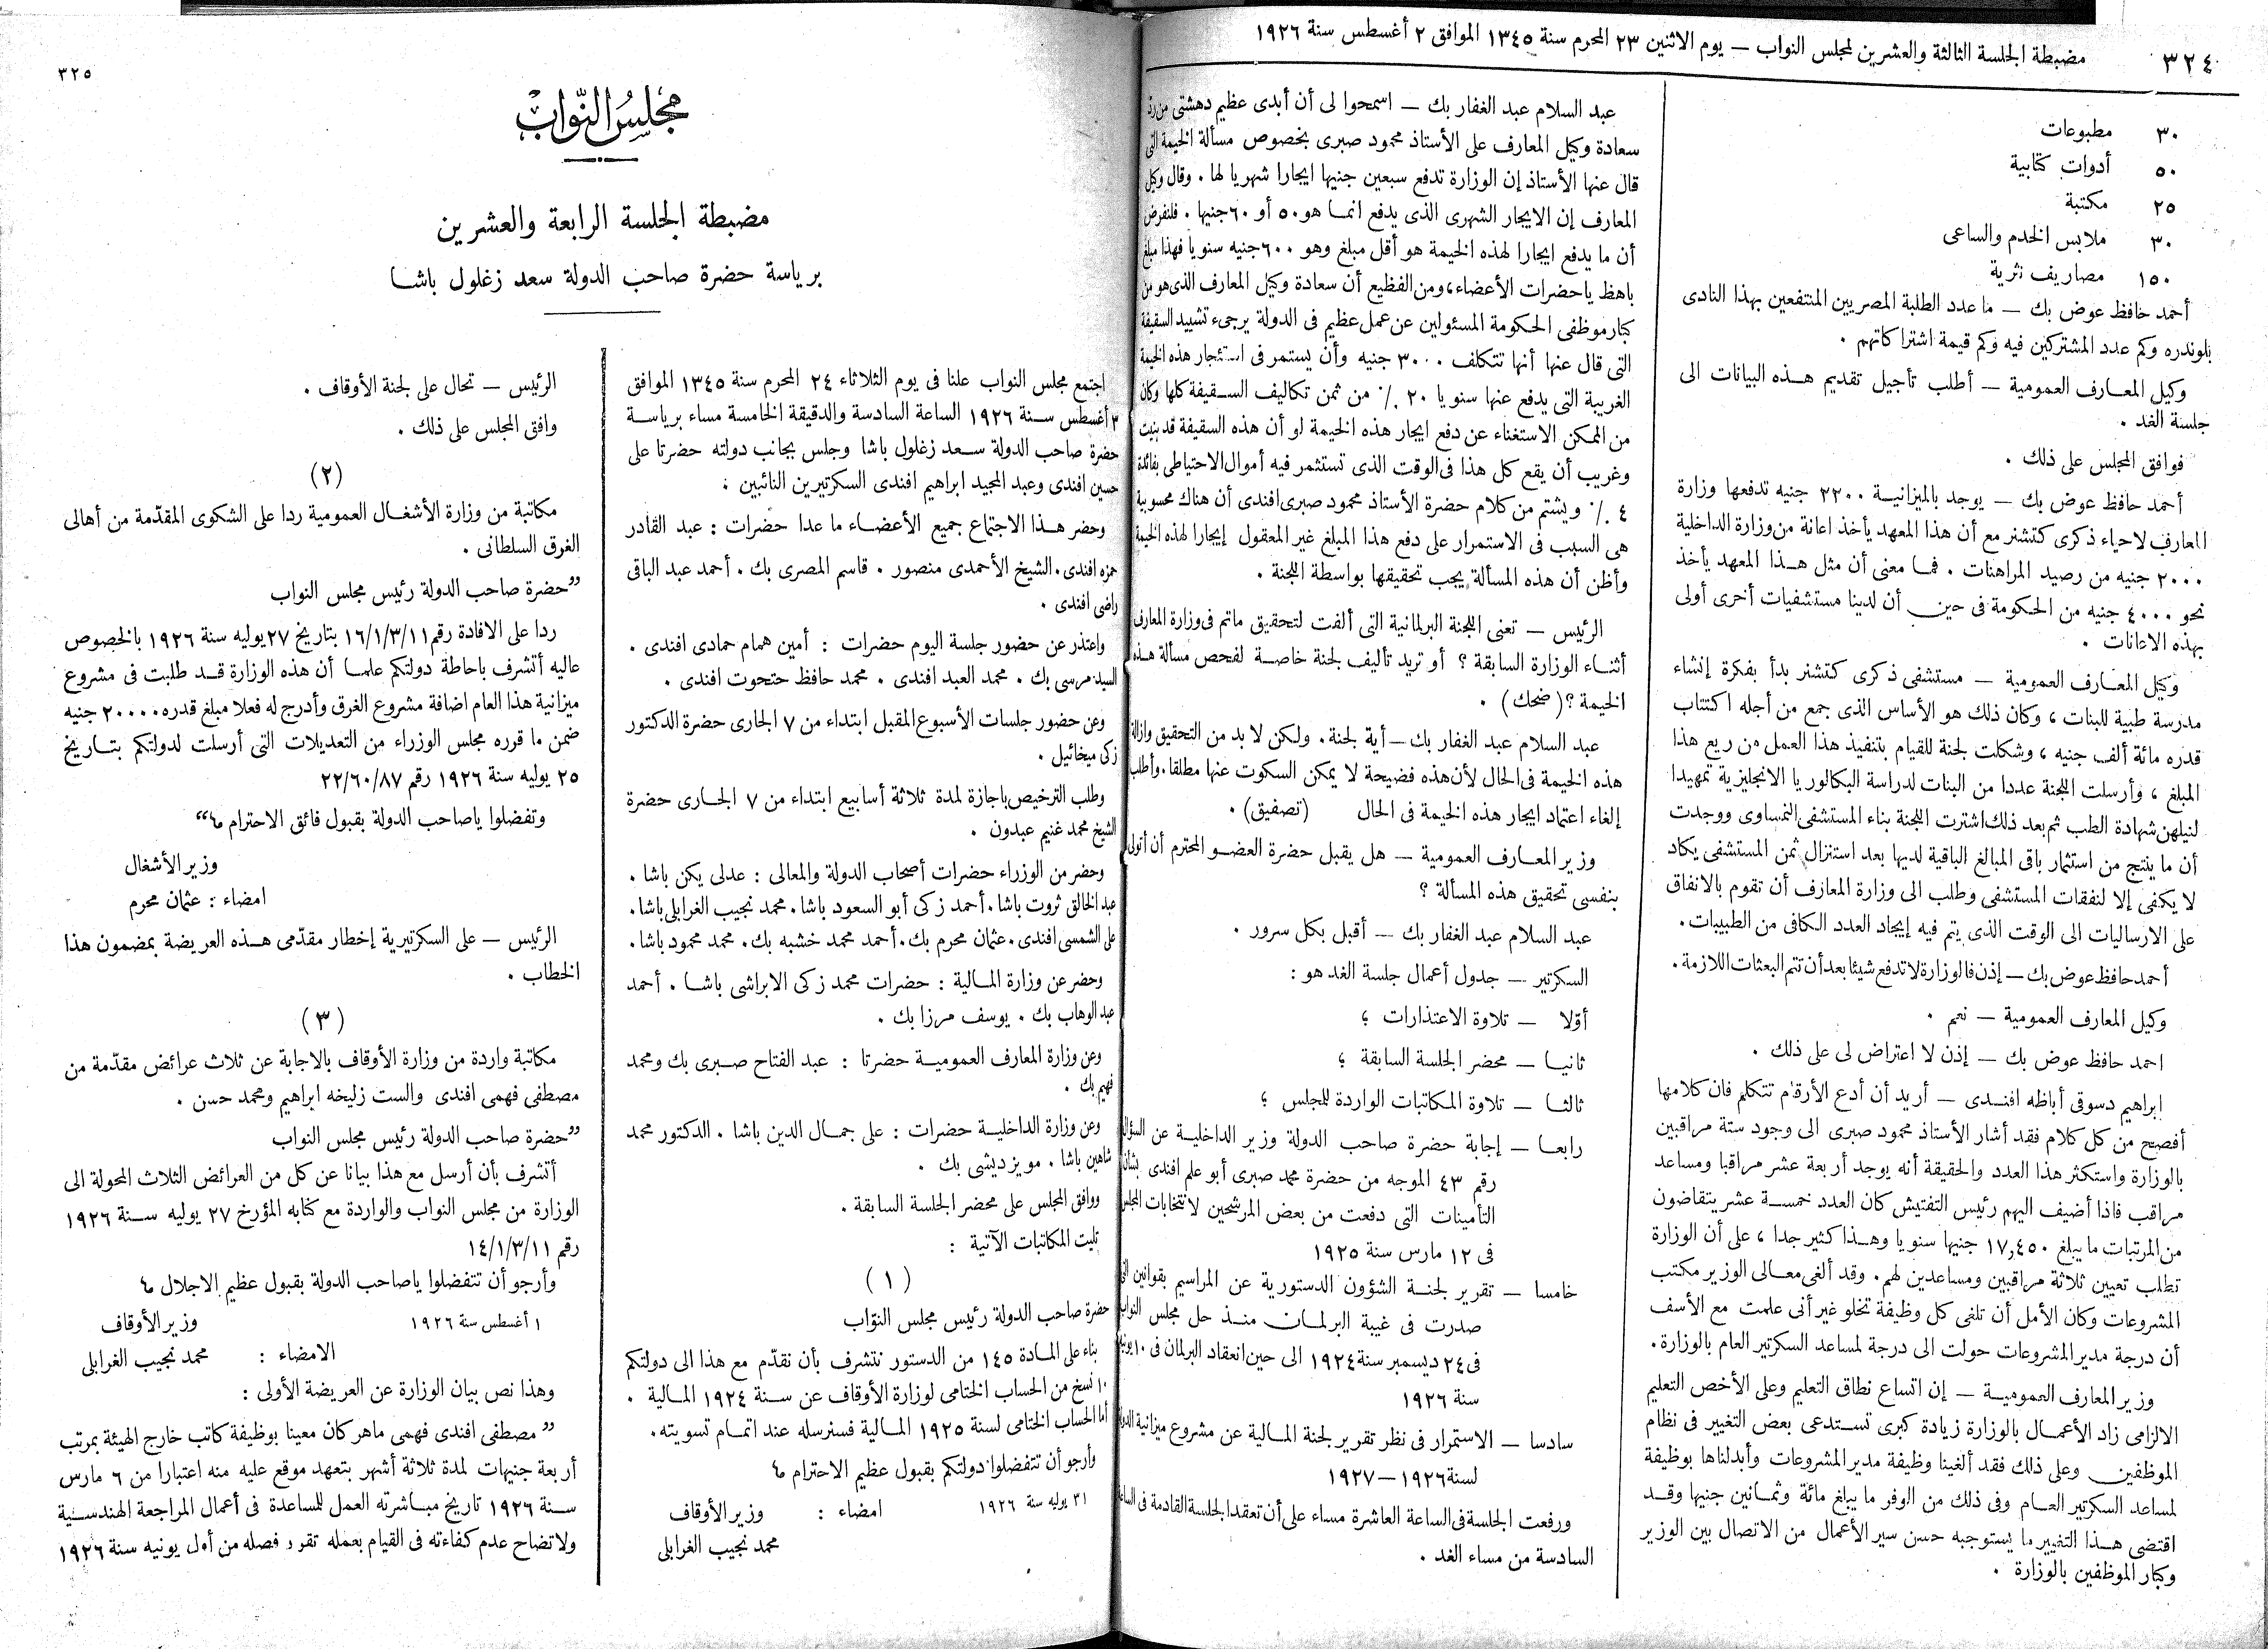 ٣٢٤
مضبطة الجلسة الثالثة والعشرين لمجلس النواب — يوم الاثنين ٢٣ المحرم سنة ١٣٤٥ الموافق ٢ أغسطس سنة ١٩٢٦
٣٠ مطبوعات
٥٠ أدوات كتابية
٢٥ مكتبة
٣٠ ملابس الخدم والساعى
١٥٠ مصاريف نثرية
أحمد حافظ عوض بك — ما عدد الطلبة المصريين المنتفعين بهذا النادى
بلوندره وكم عدد المشتركين فيه وكم قيمة اشتراكاتهم .
وكيل المعارف العمومية — أطلب تأجيل تقديم هذه البيانات الى
جلسة الغد .
فوافق المجلس على ذلك .
أحمد حافظ عوض بك — يوجد بالميزانية ٢٢٠٠ جنيه تدفعها وزارة
المعارف لاحياء ذكرى كتشنر مع أن هذا المعهد يأخذ اعانة من وزارة الداخلية
٢٠٠٠ جنيه من رصيد المراهنات . فما معنى أن مثل هذا المعهد يأخذ
نحو ٤٠٠٠ جنيه من الحكومة فى حين أن لدينا مستشفيات أخرى أولى
بهذه الاعانات .
وكيل المعارف العمومية — مستشفى ذكرى كتشنر بدأ بفكرة إنشاء
مدرسة طبية للبنات ، وكان ذلك هو الأساس الذى جمع من أجله اكتتاب
قدره مائة ألف جنيه ، وشكلت لجنة للقيام بتنفيذ هذا العمل من ريع هذا
المبلغ ، وأرسلت اللجنة عددا من البنات لدراسة البكالوريا الانجليزية تمهيدا
لنيلهن شهادة الطب ثم بعد ذلك اشترت اللجنة بناء المستشفى النمساوى ووجدت
أن ما ينتج من استثمار باقى المبالغ الباقية لديها بعد استنزال ثمن المستشفى يكاد
لا يكفى إلا لنفقات المستشفى وطلب الى وزارة المعارف أن تقوم بالانفاق
على الارساليات الى الوقت الذى يتم فيه إيجاد العدد الكافى من الطبيبات .
أحمد حافظ عوض بك — إذن فالوزارة لا تدفع شيئا بعد أن تتم البعثات اللازمة .
وكيل المعارف العمومية — نعم .
احمد حافظ عوض بك — إذن لا اعتراض لى على ذلك .
إبراهيم دسوقى أباظه افندى — أريد أن أدع الأرقام تتكلم فان كلامها
أفصح من كل كلام فقد أشار الأستاذ محمود صبرى الى وجود ستة مراقبين
بالوزارة واستكثر هذا العدد والحقيقة أنه يوجد أربعة عشر مراقبا ومساعد
مراقب فاذا أضيف اليهم رئيس التفتيش كان العدد خمسة عشر يتقاضون
من المرتبات ما يبلغ ١٧,٤٥٠ جنيها سنويا وهذا كثير جدا ، على أن الوزارة
تطلب تعيين ثلاثة مراقبين ومساعدين لهم . وقد ألغى معالى الوزير مكتب
المشروعات وكان الأمل أن تلغى كل وظيفة تخلو غير أنى علمت مع الأسف
أن درجة مدير المشروعات حولت الى درجة لمساعد السكرتير العام بالوزارة .
وزير المعارف العمومية — إن اتساع نطاق التعليم وعلى الأخص التعليم
الالزامى زاد الأعمال بالوزارة زيادة كبرى تستدعى بعض التغيير فى نظام
الموظفين وعلى ذلك فقد ألغينا وظيفة مدير المشروعات وأبدلناها بوظيفة
لمساعد السكرتير العام وفى ذلك من الوفر ما يبلغ مائة وثمانين جنيها وقد
اقتضى هذا التغيير ما يستوجبه حسن سير الأعمال من الاتصال بين الوزير
وكبار الموظفين بالوزارة .
عبد السلام عبد الغفار بك — اسمحوا لى أن أبدى عظيم دهشتى من رد
سعادة وكيل المعارف على الأستاذ محمود صبرى بخصوص مسألة الخيمة التى
قال عنها الأستاذ إن الوزارة تدفع سبعين جنيها ايجارا شهريا لها . وقال وكيل
المعارف إن الايجار الشهرى الذى يدفع انما هو ٥٠ أو ٦٠ جنيها . فلنفرض
أن ما يدفع ايجارا لهذه الخيمة هو أقل مبلغ وهو ٦٠٠ جنيه سنويا فهذا مبلغ
باهظ يا حضرات الأعضاء، ومن الفظيع أن سعادة وكيل المعارف الذى هو من
كبار موظفى الحكومة المسئولين عن عمل عظيم فى الدولة يرجىء تشييد السقيفة
التى قال عنها أنها تتكلف ٣٠٠٠ جنيه وأن يستمر فى استئجار هذه الخيمة
الغريبة التى يدفع عنها سنويا ٢٠ ./· من ثمن تكاليف السقيفة كلها وكان
من الممكن الاستغناء عن دفع ايجار هذه الخيمة لو أن هذه السقيفة قد بنيت
وغريب أن يقع كل هذا فى الوقت الذى تستثمر فيه أموال الاحتياطى بفائدة
٤ ./· ويشتم من كلام حضرة الأستاذ محمود صبرى افندى أن هناك محسوبية
هى السبب فى الاستمرار على دفع هذا المبلغ غير المعقول إيجارا لهذه الخيمة
وأظن أن هذه المسألة يجب تحقيقها بواسطة اللجنة .
الرئيس — تعنى اللجنة البرلمانية التى ألفت لتحقيق ماتم فى وزارة المعارف
أثناء الوزارة السابقة ؟ أو تريد تأليف لجنة خاصة لفحص مسألة هذه
الخيمة ؟ (ضحك) .
عبد السلام عبد الغفار بك — أية لجنة . ولكن لا بد من التحقيق وازالة
هذه الخيمة فى الحال لأن هذه فضيحة لا يمكن السكوت عنها مطلقا . وأطلب
إلغاء اعتماد ايجار هذه الخيمة فى الحال (تصفيق) .
وزير المعارف العمومية — هل يقبل حضرة العضو المحترم أن أتولى
بنفسى تحقيق هذه المسألة ؟
عبد السلام عبد الغفار بك — أقبل بكل سرور .
السكرتير — جدول أعمال جلسة الغد هو :
أوّلا — تلاوة الاعتذارات ؛
ثانيا — محضر الجلسة السابقة ؛
ثالثا — تلاوة المكاتبات الواردة للمجلس ؛
رابعا — إجابة حضرة صاحب الدولة وزير الداخلية عن السؤال
رقم ٤٣ الموجه من حضرة محمد صبرى أبو علم افندى بشأن
التأمينات التى دفعت من بعض المرشحين لانتخابات المجلس
فى ١٢ مارس سنة ١٩٢٥
خامسا — تقرير لجنة الشؤون الدستورية عن المراسيم بقوانين التى
صدرت فى غيبة البرلمان منذ حل مجلس النواب
فى ٢٤ ديسمبر سنة ١٩٢٤ الى حين انعقاد البرلمان فى ١٠ يونية
سنة ١٩٢٦
سادسا — الاستمرار فى نظر تقرير لجنة المالية عن مشروع ميزانية الدولة
لسنة ١٩٢٦—١٩٢٧
ورفعت الجلسة فى الساعة العاشرة مساء على أن تعقد الجلسة القادمة فى الساعة
السادسة من مساء الغد .
٣٢٥
مجلس النوّاب
مضبطة الجلسة الرابعة والعشرين
برياسة حضرة صاحب الدولة سعد زغلول باشا
اجتمع مجلس النواب علنا فى يوم الثلاثاء ٢٤ المحرم سنة ١٣٤٥ الموافق
٣ أغسطس سنة ١٩٢٦ الساعة السادسة والدقيقة الخامسة مساء برياسة
حضرة صاحب الدولة سعد زغلول باشا وجلس بجانب دولته حضرتا على
حسين افندى وعبد المجيد ابراهيم افندى السكرتيرين النائبين .
وحضر هذا الاجتماع جميع الأعضاء ما عدا حضرات : عبد القادر
حمزه افندى . الشيخ الأحمدى منصور . قاسم المصرى بك . أحمد عبد الباقى
راضى افندى .
واعتذر عن حضور جلسة اليوم حضرات : أمين همام حمادى افندى .
السيد مرسى بك . محمد العبد افندى . محمد حافظ حتحوت افندى .
وعن حضور جلسات الأسبوع المقبل ابتداء من ٧ الجارى حضرة الدكتور
زكى ميخائيل .
وطلب الترخيص باجازة لمدة ثلاثة أسابيع ابتداء من ٧ الجارى حضرة
الشيخ محمد غنيم عبدون .
وحضر من الوزراء حضرات أصحاب الدولة والمعالى : عدلى يكن باشا .
عبد الخالق ثروت باشا . أحمد زكى أبو السعود باشا . محمد نجيب الغرابلى باشا .
على الشمسى افندى . عثمان محرم بك . أحمد محمد خشبه بك . محمد محمود باشا .
وحضر عن وزارة المالية : حضرات محمد زكى الابراشى باشا . أحمد
عبد الوهاب بك . يوسف مرزا بك .
وعن وزارة المعارف العمومية حضرتا : عبد الفتاح صبرى بك ومحمد
فهيم بك .
وعن وزارة الداخلية حضرات : على جمال الدين باشا . الدكتور محمد
شاهين باشا . مويزديشى بك .
ووافق المجلس على محضر الجلسة السابقة .
تليت المكاتبات الآتية :
(١)
حضرة صاحب الدولة رئيس مجلس النوّاب
بناء على المادة ١٤٥ من الدستور نتشرف بأن نقدّم مع هذا الى دولتكم
١٠ نسخ من الحساب الختامى لوزارة الأوقاف عن سنة ١٩٢٤ المالية .
أما الحساب الختامى لسنة ١٩٢٥ المالية فسنرسله عند اتمام تسويته .
وأرجو أن تتفضلوا دولتكم بقبول عظيم الاحترام ؎
٣١ يوليه سنة ١٩٢٦ امضاء : وزير الأوقاف
محمد نجيب الغرابلى
الرئيس — تحال على لجنة الأوقاف .
وافق المجلس على ذلك .
(٢)
مكاتبة من وزارة الأشغال العمومية ردا على الشكوى المقدّمة من أهالى
الغرق السلطانى .
”حضرة صاحب الدولة رئيس مجلس النواب
ردا على الافادة رقم ١٦/١/٣/١١ بتاريخ ٢٧ يوليه سنة ١٩٢٦ بالخصوص
عاليه أتشرف باحاطة دولتكم علما أن هذه الوزارة قد طلبت فى مشروع
ميزانية هذا العام اضافة مشروع الغرق وأدرج له فعلا مبلغ قدره ٢٠٠٠٠ جنيه
ضمن ما قرره مجلس الوزراء من التعديلات التى أرسلت لدولتكم بتاريخ
٢٥ يوليه سنة ١٩٢٦ رقم ٢٢/٦٠/٨٧
وتفضلوا ياصاحب الدولة بقبول فائق الاحترام ؎“
وزير الأشغال
امضاء : عثمان محرم
الرئيس — على السكرتيرية إخطار مقدّمى هذه العريضة بمضمون هذا
الخطاب .
(٣)
مكاتبة واردة من وزارة الأوقاف بالاجابة عن ثلاث عرائض مقدّمة من
مصطفى فهمى افندى والست زليخه ابراهيم ومحمد حسن .
”حضرة صاحب الدولة رئيس مجلس النواب
أتشرف بأن أرسل مع هذا بيانا عن كل من العرائض الثلاث المحولة الى
الوزارة من مجلس النواب والواردة مع كتابه المؤرخ ٢٧ يوليه سنة ١٩٢٦
رقم ١٤/١/٣/١١
وأرجو أن تتفضلوا ياصاحب الدولة بقبول عظيم الاجلال ؎
١ أغسطس سنة ١٩٢٦ وزير الأوقاف
الامضاء : محمد نجيب الغرابلى
وهذا نص بيان الوزارة عن العريضة الأولى :
” مصطفى افندى فهمى ماهر كان معينا بوظيفة كاتب خارج الهيئة بمرتب
أربعة جنيهات لمدة ثلاثة أشهر بتعهد موقع عليه منه اعتبارا من ٦ مارس
سنة ١٩٢٦ تاريخ مباشرته العمل للمساعدة فى أعمال المراجعة الهندسية
ولاتضاح عدم كفاءته فى القيام بعمله تقرر فصله من أول يونيه سنة ١٩٢٦